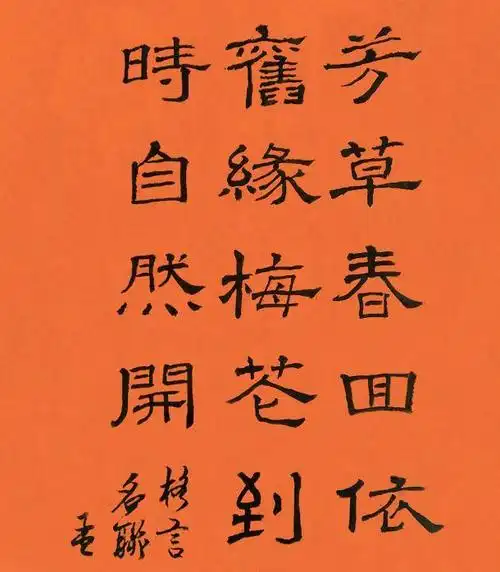 芳草春回依
舊緣梅花到
時自然開
格言
名聯